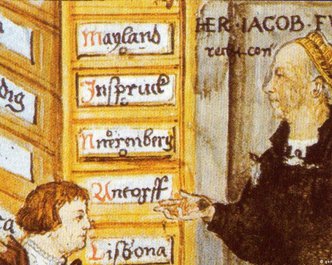 Mayland
Inspruck
Nuremberg
Antorff
Lisbona
dig
HER·IACOB·F